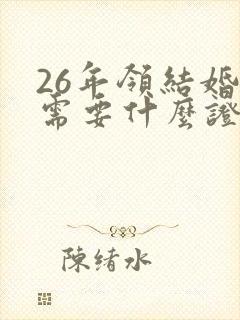 26年領結婚
需要什麼證
陳緒水